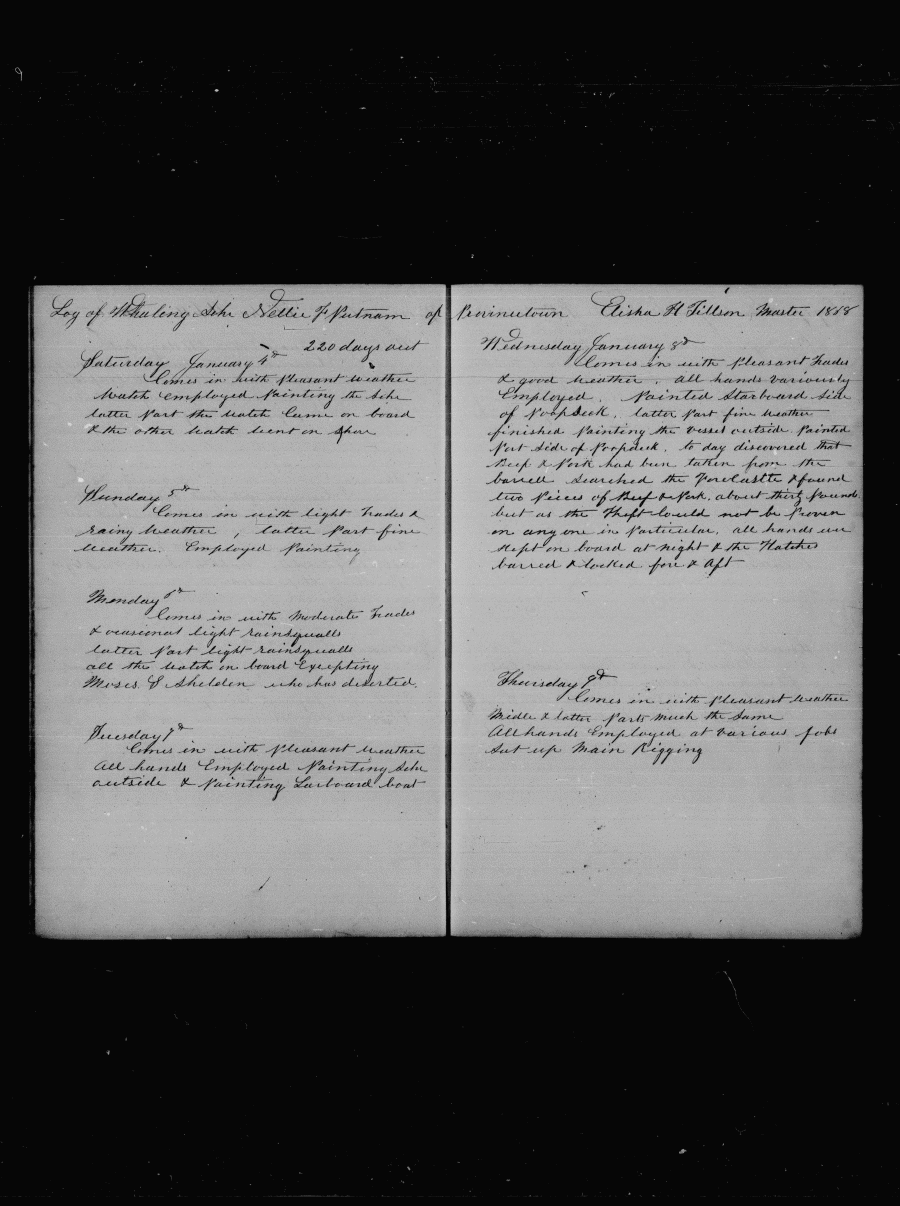 Log of Whaling Schr Nettie F Putnam of Provincetown Elisha H Tillson Master 1868
220 days out
Saturday January 4th
Comes in with Pleasant weather
Watch Employed Painting the Schr
latter Part the Watch Came on board
& the other Watch Went on Shore
Sunday 5th
Comes in with light Trades &
rainy Weather, latter Part fine
weather. Employed Painting
Monday 6th
Comes in with Moderate Trades
& occasional light rainsqualls
latter Part light rainsqualls
all the watch on board Excepting
Moses S Shelden who has deserted.
Tuesday 7th
Comes in with Pleasant weather
All hands Employed Painting Schr
outside & Painting Larboard boat
Wednesday January 8th
Comes in with Pleasant Trades
& good weather. All hands variously
Employed. Painted Starboard Side
of Poopdeck. latter Part fine weather
finished Painting the vessel outside. Painted
Port Side of Poopdeck. to day discovered that
Beef & Pork had been taken from the
barrell Searched the Forecastle & found
two Pieces of Beef & Pork. about thirty Pounds.
but as the Theft Could not be Proven
on any one in Particular. all hands were
Kept on board at night & the Hatches
barred & locked fore & Aft
Thursday 9th
Comes in with Pleasant weather
Midle & latter Parts much the Same
All hands Employed at various Jobs
Set up Main Rigging